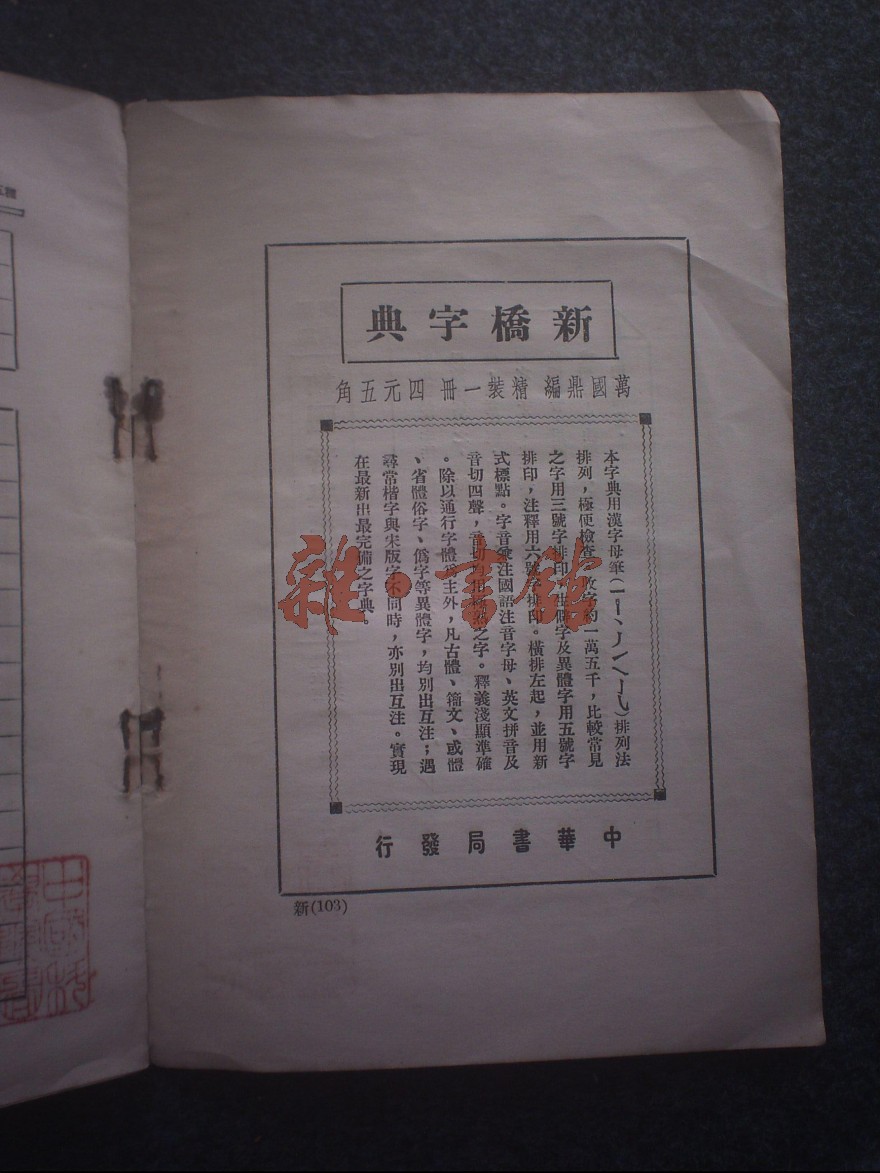 新橋字典
萬國鼎編 精裝一冊 四元五角
本字典用漢字母筆(一丨丶丿乀𠄌乚)排列法
排列，極便檢查。收字約一萬五千，比較常見
之字用三號字排印，生僻字及異體字用五號字
排印，注釋用六號字排印。橫排左起，並用新
式標點。字音彙注國語注音字母、英文拼音及
音切四聲，音切均用 之字。釋義淺顯準確
。除以通行字體爲主外，凡古體、籀文、或體
、省體俗字、僞字等異體字，均別出互注；遇
尋常楷字與宋版字不同時，亦別出互注。實現
在最新出最完備之字典
中華書局發行
新(103)
雜·書館